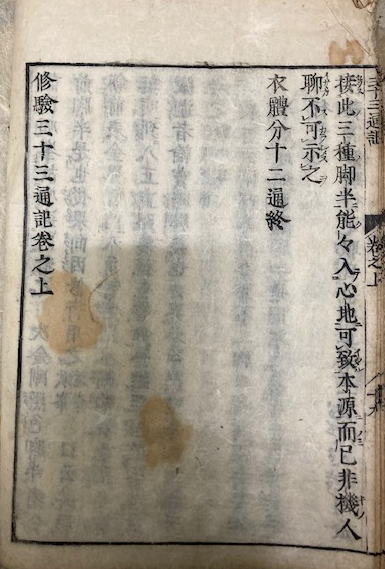 三十三通記 卷之上 十九
棲此三種脚半能々入心地可致本源而已非機人
聊不可示之
衣體分十二通終
修驗三十三通記卷之上